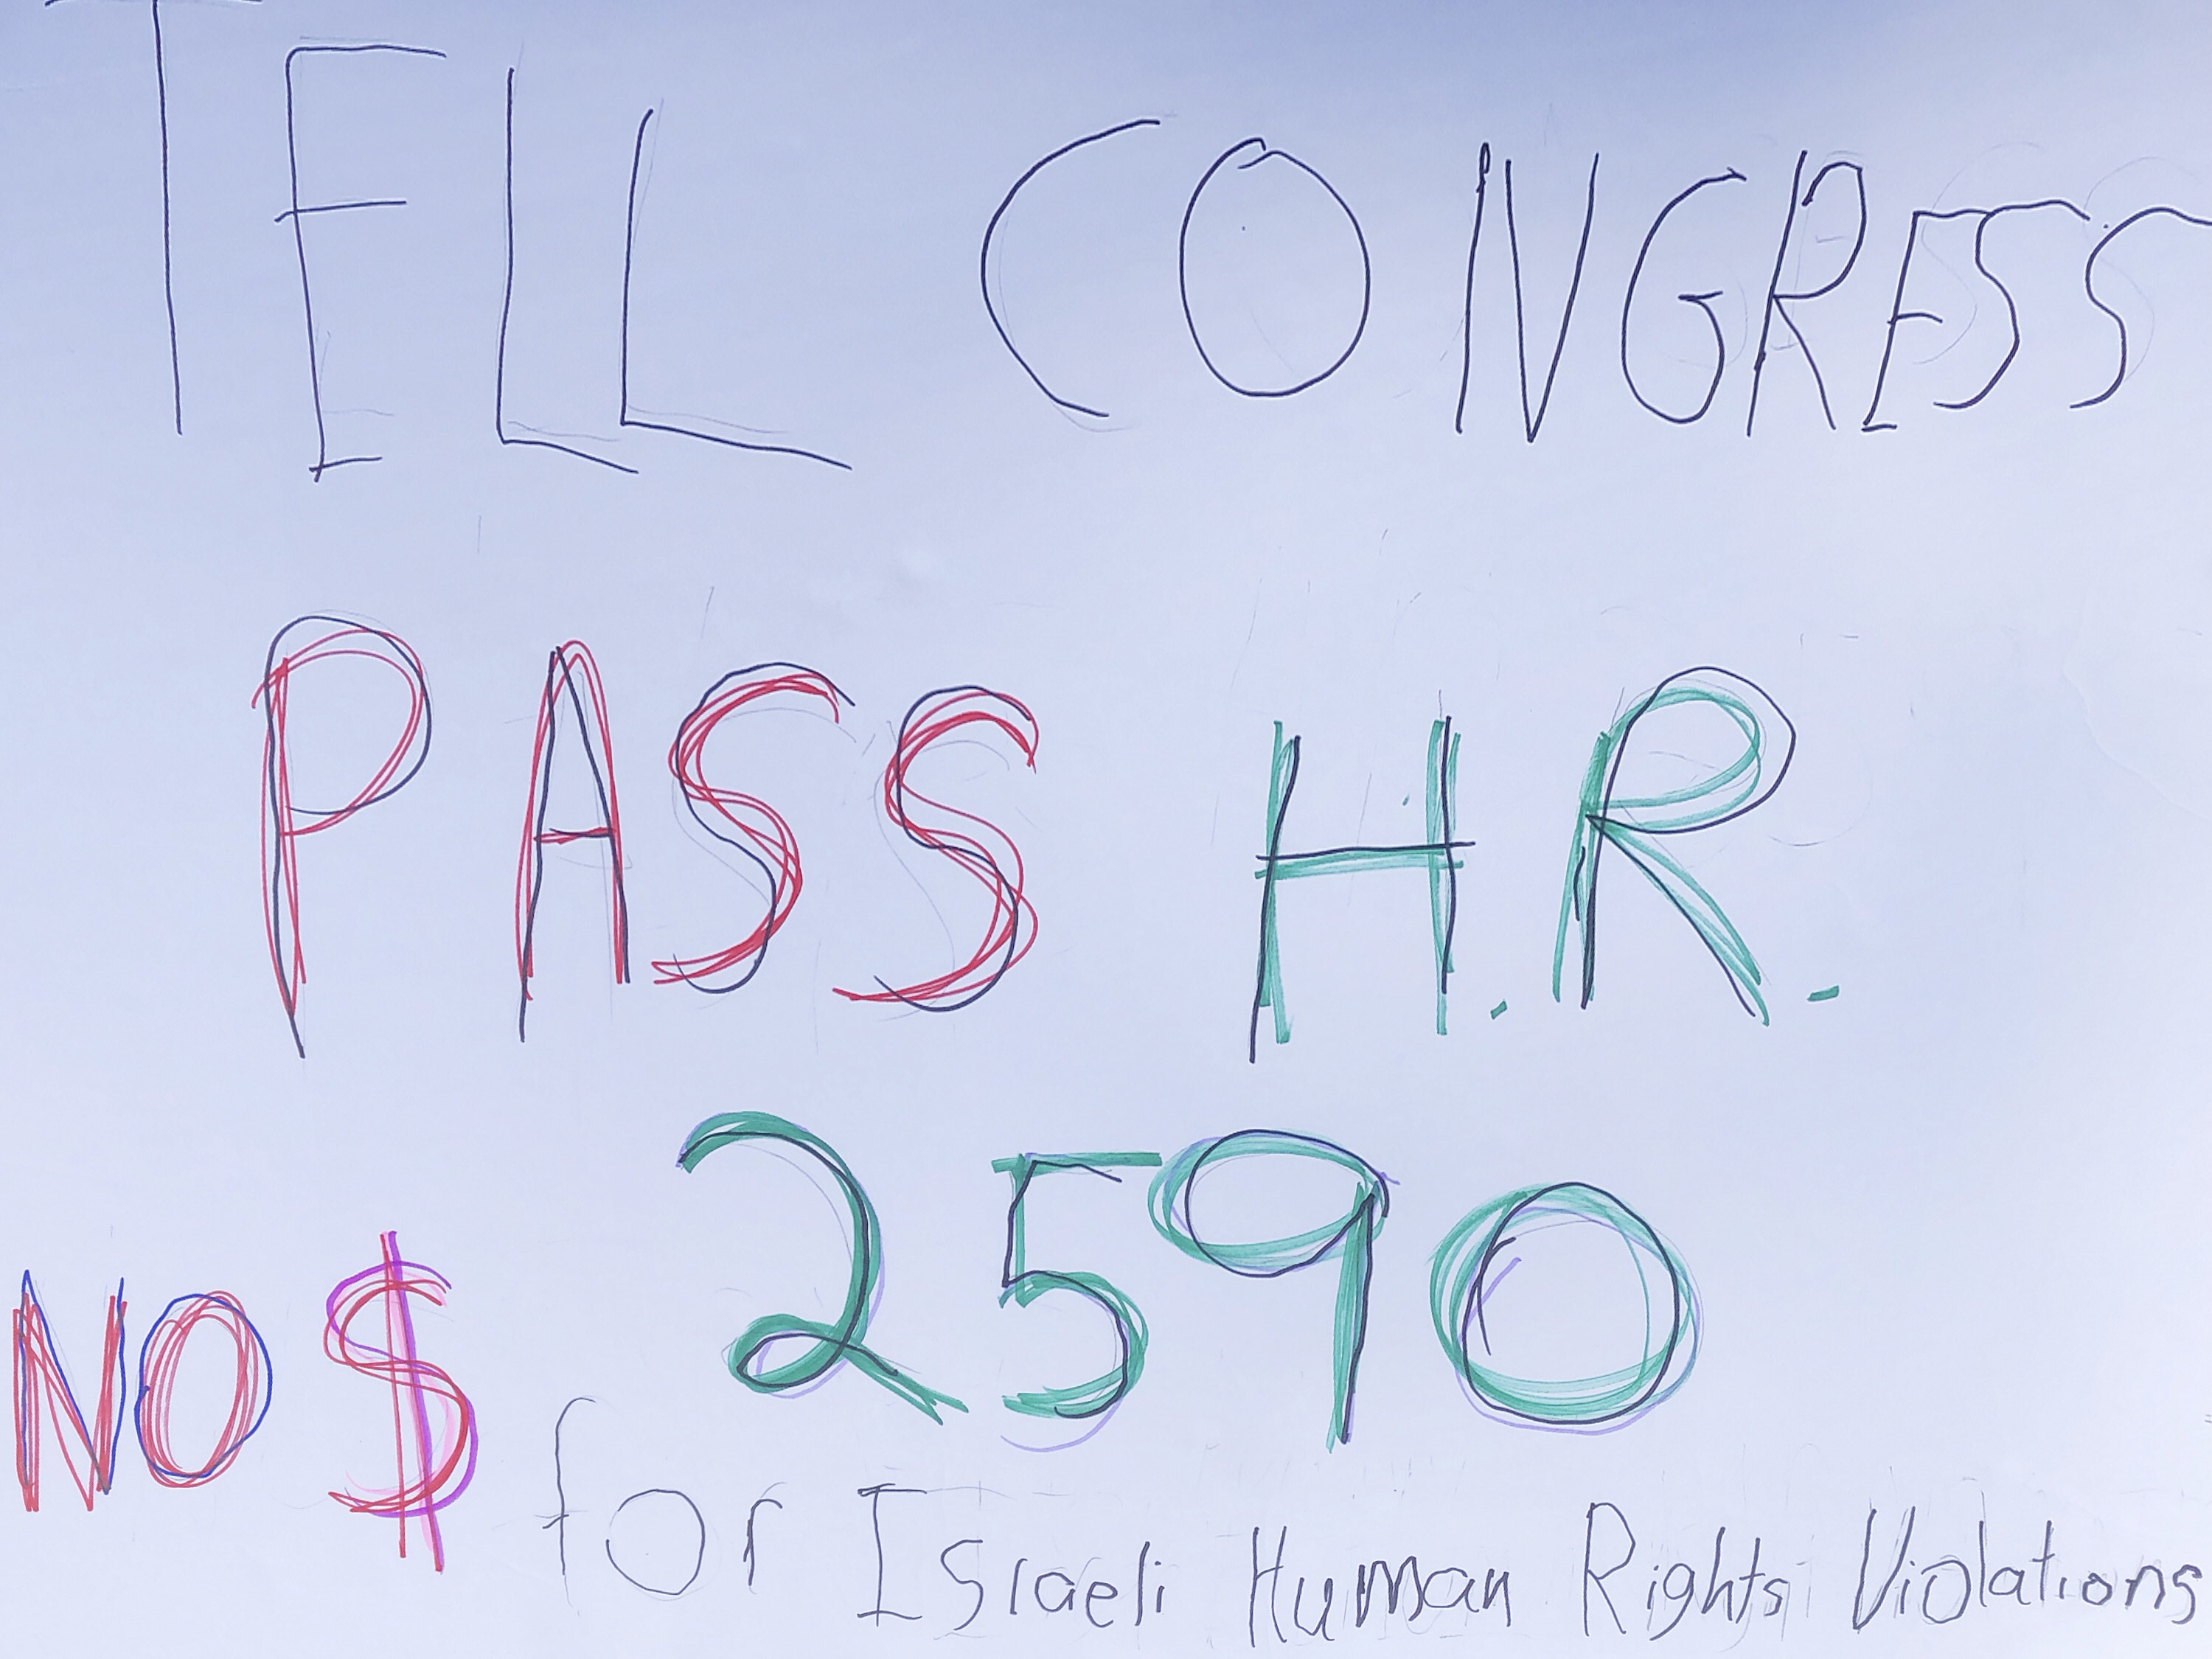 TELL CONGRESS
PASS H.R.
2590
NO $ for Israeli Human Rights Violations